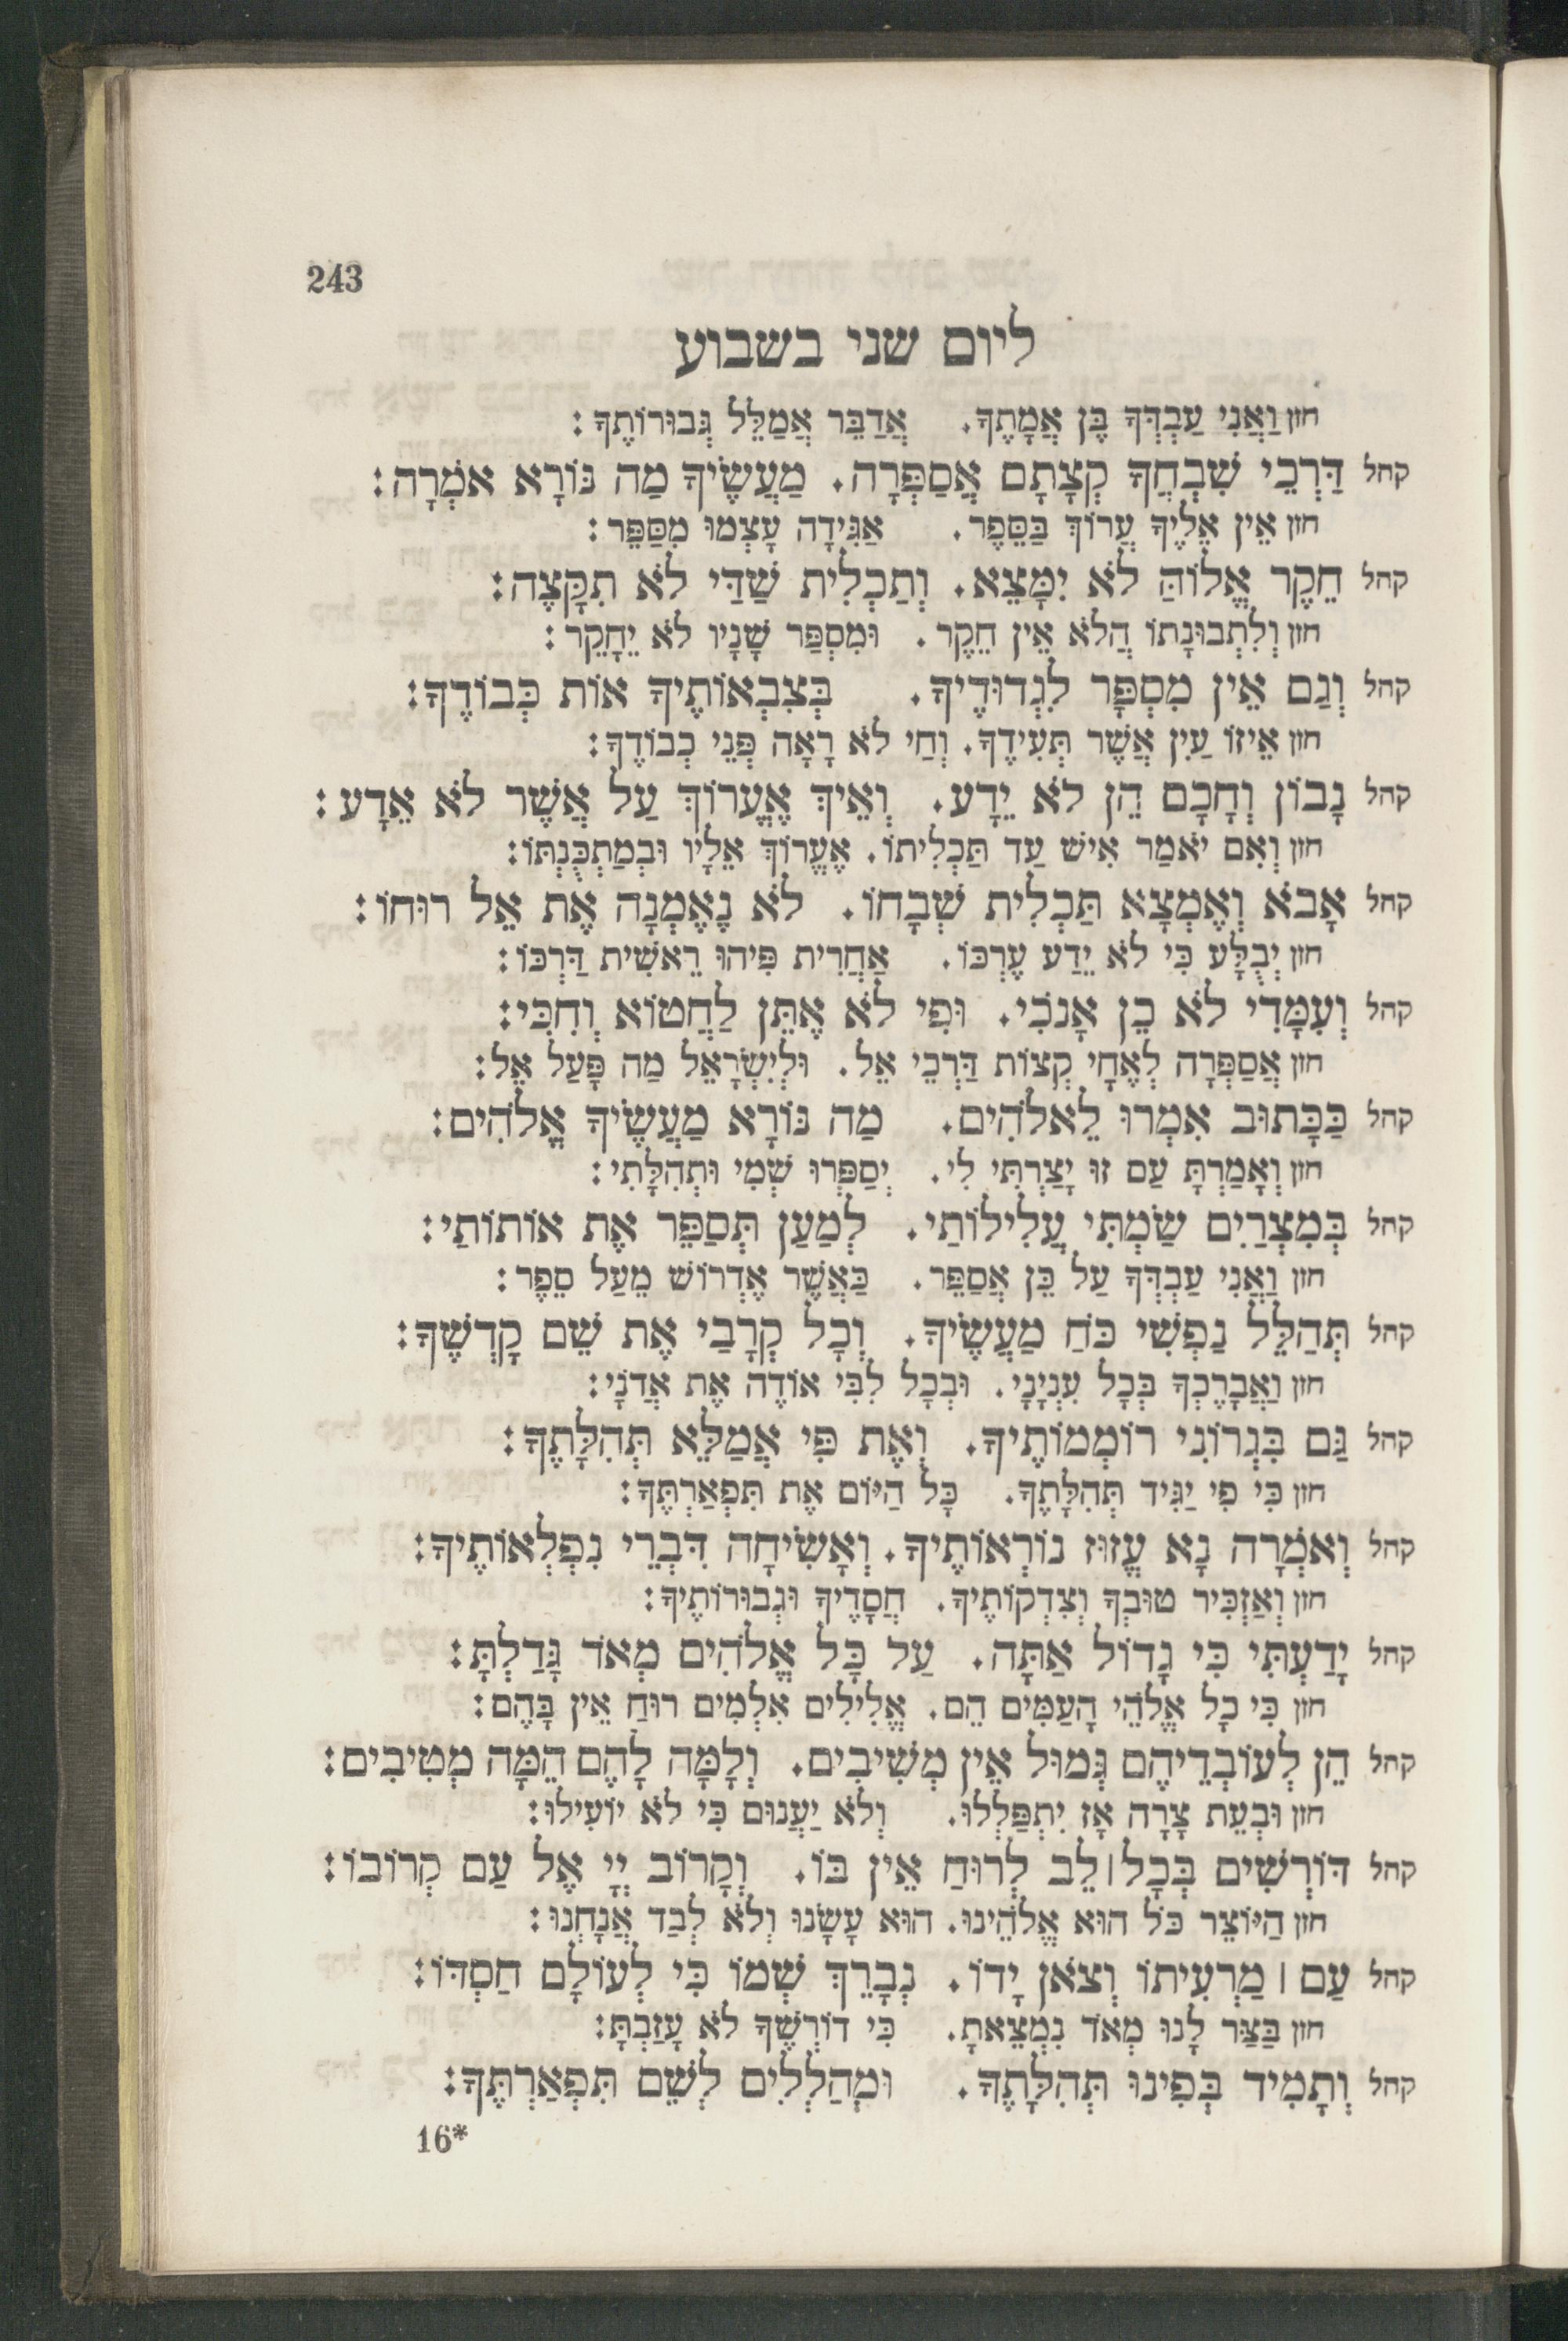 243
ליום שני בשבוע
חזן וַאֲנִי עַבְדְּךָ בֶּן אֲמָתֶךָ. אֲדַבֵּר אֲמַלֵּל גְּבוּרוֹתֶךָ:
קהל דַּרְכֵי שִׁבְחֲךָ קְצָתָם אֲסַפְּרָה. מַעֲשֶׂיךָ מַה נּוֹרָא אֹמְרָה:
חזן אֵין אֵלֶיךָ עֲרוֹךְ בַּסֵּפֶר. אַגִּידָה עָצְמוּ מִסַּפֵּר:
קהל חֵקֶר אֱלוֹהַּ לֹא יִמָּצֵא. וְתַכְלִית שַׁדַּי לֹא תִקָּצֶה:
חזן וְלִתְבוּנָתוֹ הֲלֹא אֵין חֵקֶר. וּמִסְפַּר שָׁנָיו לֹא יֵחָקֵר:
קהל וְגַם אֵין מִסְפָּר לִגְדוּדֶיךָ. בְּצִבְאוֹתֶיךָ אוֹת כְּבוֹדֶךָ:
חזן אֵיזוֹ עַיִן אֲשֶׁר תְּעִידֶךָ. וְחַי לֹא רָאָה פְּנֵי כְבוֹדֶךָ:
קהל נָבוֹן וְחָכָם הֵן לֹא יֵדָע. וְאֵיךְ אֶעֱרוֹךְ עַל אֲשֶׁר לֹא אֵדָע:
חזן וְאִם יֹאמַר אִישׁ עַד תַּכְלִיתוֹ. אֶעֱרוֹךְ אֵלָיו וּבְמַתְכֻּנְתּוֹ:
קהל אָבֹא וְאֶמְצָא תַּכְלִית שְׁבָחוֹ. לֹא נֶאֶמְנָה אֶת אֵל רוּחוֹ:
חזן יְבֻלָּע כִּי לֹא יֵדַע עֶרְכּוֹ. אַחֲרִית פִּיהוּ רֵאשִׁית דַּרְכּוֹ:
קהל וְעִמָּדִי לֹא כֵן אָנֹכִי. וּפִי לֹא אֶתֵּן לַחֲטוֹא וְחִכִּי:
חזן אֲסַפְּרָה לְאֶחָי קְצוֹת דַּרְכֵי אֵל. וּלְיִשְׂרָאֵל מַה פָּעַל אֵל:
קהל כַּכָּתוּב אִמְרוּ לֵאלֹהִים. מַה נּוֹרָא מַעֲשֶׂיךָ אֱלֹהִים:
חזן וְאָמַרְתָּ עַם זוּ יָצַרְתִּי לִי. יְסַפְּרוּ שְׁמִי וּתְהִלָּתִי:
קהל בְּמִצְרַיִם שַׂמְתִּי עֲלִילוֹתַי. לְמַעַן תְּסַפֵּר אֶת אוֹתוֹתַי:
חזן וַאֲנִי עַבְדְּךָ עַל כֵּן אֲסַפֵּר. כַּאֲשֶׁר אֶדְרוֹשׁ מֵעַל סֵפֶר:
קהל תְּהַלֵּל נַפְשִׁי כֹּחַ מַעֲשֶׂיךָ. וְכָל קְרָבַי אֶת שֵׁם קָדְשֶׁךָ:
חזן וַאֲבָרֶכְךָ בְּכָל עִנְיָנָי. וּבְכָל לִבִּי אוֹדֶה אֶת אֲדֹנָי:
קהל גַּם בִּגְרוֹנִי רוֹמְמוֹתֶיךָ. וְאֶת פִּי אֲמַלֵּא תְּהִלָּתֶךָ:
חזן כִּי פִי יַגִּיד תְּהִלָּתֶךָ. כָּל הַיּוֹם אֶת תִּפְאַרְתֶּךָ:
קהל וְאֹמְרָה נָא עֱזוּז נוֹרְאוֹתֶיךָ. וְאָשִׂיחָה דִּבְרֵי נִפְלְאוֹתֶיךָ:
חזן וְאַזְכִּיר טוּבְךָ וְצִדְקוֹתֶיךָ. חֲסָדֶיךָ וּגְבוּרוֹתֶיךָ:
קהל יָדַעְתִּי כִּי גָדוֹל אַתָּה. עַל כָּל אֱלֹהִים מְאֹד גָּדַלְתָּ:
חזן כִּי כָל אֱלֹהֵי הָעַמִּים הֵם. אֱלִילִים אִלְמִים רוּחַ אֵין בָּהֶם:
קהל הֵן לְעוֹבְדֵיהֶם גְּמוּל אֵין מְשִׁיבִים. וְלָמָּה לָהֶם הֵמָּה מְטִיבִים:
חזן וּבְעֵת צָרָה אָז יִתְפַּלְלוּ. וְלֹא יַעֲנוּם כִּי לֹא יוֹעִילוּ:
קהל דּוֹרְשִׁים בְּכָל׀לֵב לְרוּחַ אֵין בּוֹ. וְקָרוֹב יְיָ אֶל עַם קְרוֹבוֹ:
חזן הַיּוֹצֵר כֹּל הוּא אֱלֹהֵינוּ. הוּא עָשָׂנוּ וְלֹא לְבַד אֲנָחְנוּ:
קהל עַם ׀ מַרְעִיתוֹ וְצֹאן יָדוֹ. נְבָרֵךְ שְׁמוֹ כִּי לְעוֹלָם חַסְדּוֹ:
חזן בַּצַּר לָנוּ מְאֹד נִמְצֵאתָ. כִּי דוֹרְשֶׁךָ לֹא עָזַבְתָּ:
קהל וְתָמִיד בְּפִינוּ תְּהִלָּתֶךָ. וּמְהַלְלִים לְשֵׁם תִּפְאַרְתֶּךָ:
16*